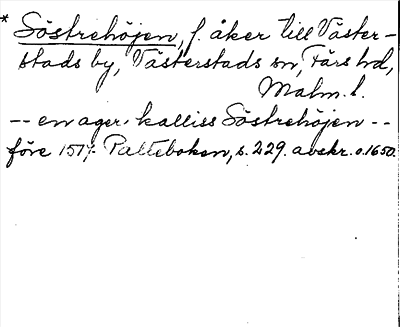 * Söstrehöjen, f. åker till Väster-
stads by, Västerstads sn, Färs hd,
Malm. l.
-- en ager. kalliss Söstrehöjen --
före 1517. Palteboken, s. 229. avskr. o. 1650.